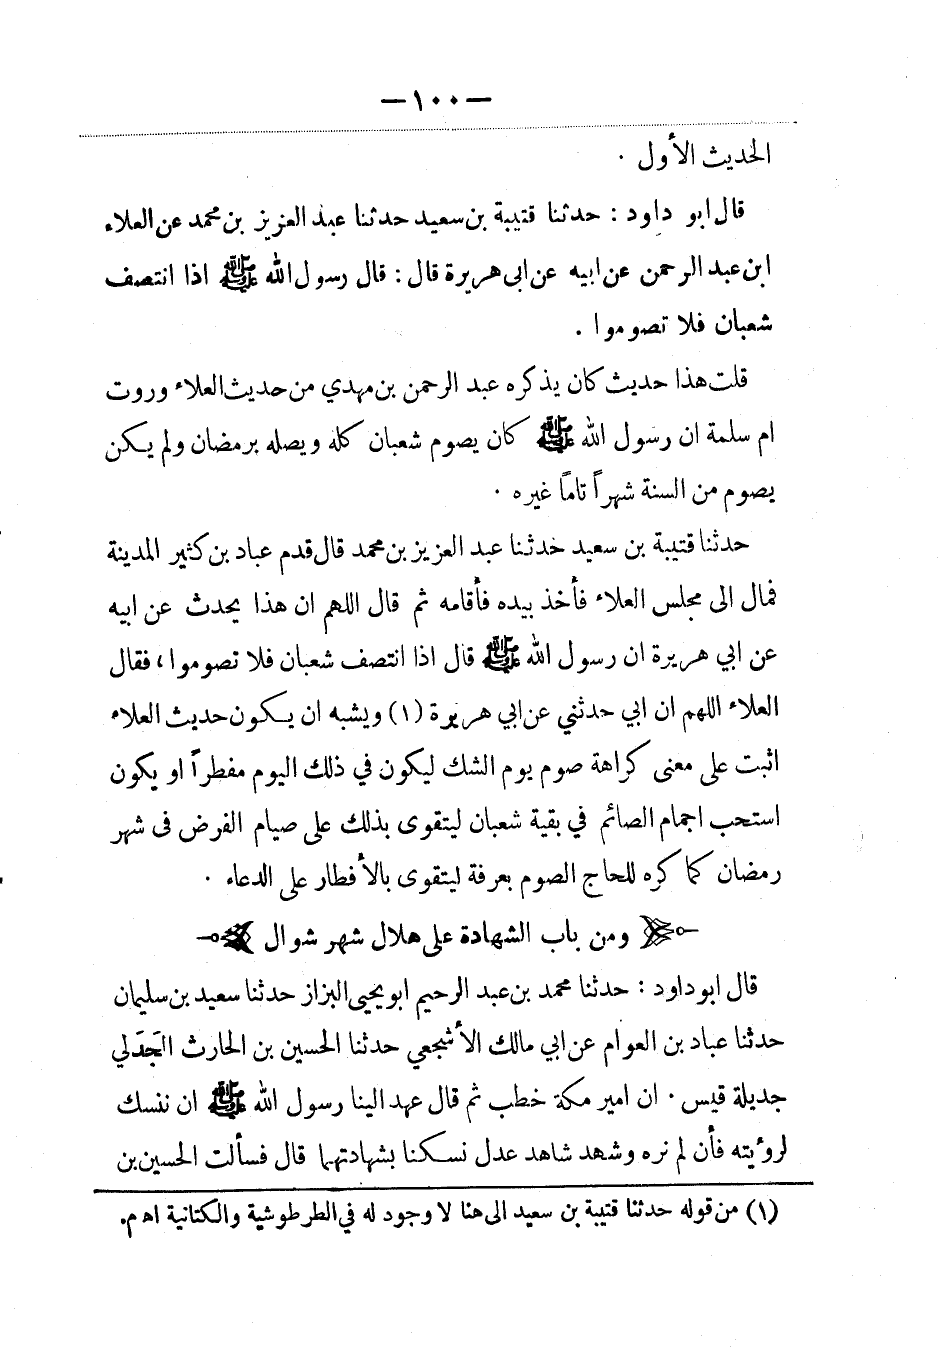 —١٠٠—
الحديث الأول ·
قال ابو داود : حدثنا قتيبة بن سعيد حدثنا عبد العزيز بن محمد عن العلاء
ابن عبد الرحمن عن ابيه عن ابى هريرة قال : قال رسول الله ﷺ اذا انتصف
شعبان فلا تصوموا .
قلت هذا حديث كان يذكره عبد الرحمن بن مهدي من حديث العلاء وروت
ام سلمة ان رسول الله ﷺ كان يصوم شعبان كله ويصله برمضان ولم يكن
يصوم من السنة شهراً تاماً غيره ·
حدثنا قتيبة بن سعيد حدثنا عبد العزيز بن محمد قال قدم عباد بن كثير المدينة
فمال الى مجلس العلاء فأخذ بيده فأقامه ثم قال اللهم ان هذا يحدث عن ابيه
عن ابي هريرة ان رسول الله ﷺ قال اذا انتصف شعبان فلا تصوموا ، فقال
العلاء اللهم ان ابي حدثني عن ابي هريرة (١) ويشبه ان يكون حديث العلاء
اثبت على معنى كراهة صوم يوم الشك ليكون في ذلك اليوم مفطراً او يكون
استحب اجمام الصائم في بقية شعبان ليتقوى بذلك على صيام الفرض فى شهر
رمضان كما كره للحاج الصوم بعرفة ليتقوى بالأفطار على الدعاء ·
ومن باب الشهادة على هلال شهر شوال
قال ابو داود : حدثنا محمد بن عبد الرحيم ابو يحيى البزاز حدثنا سعيد بن سليمان
حدثنا عباد بن العوام عن ابي مالك الأشجعي حدثنا الحسين بن الحارث الجَدَلي
جديلة قيس · ان امير مكة خطب ثم قال عهد الينا رسول الله ﷺ ان ننسك
لرؤيته فأن لم نره وشهد شاهد عدل نسكنا بشهادتهما قال فسألت الحسين بن
(١) من قوله حدثنا قتيبة بن سعيد الى هنا لا وجود له في الطرطوشية والكتانية اه م.